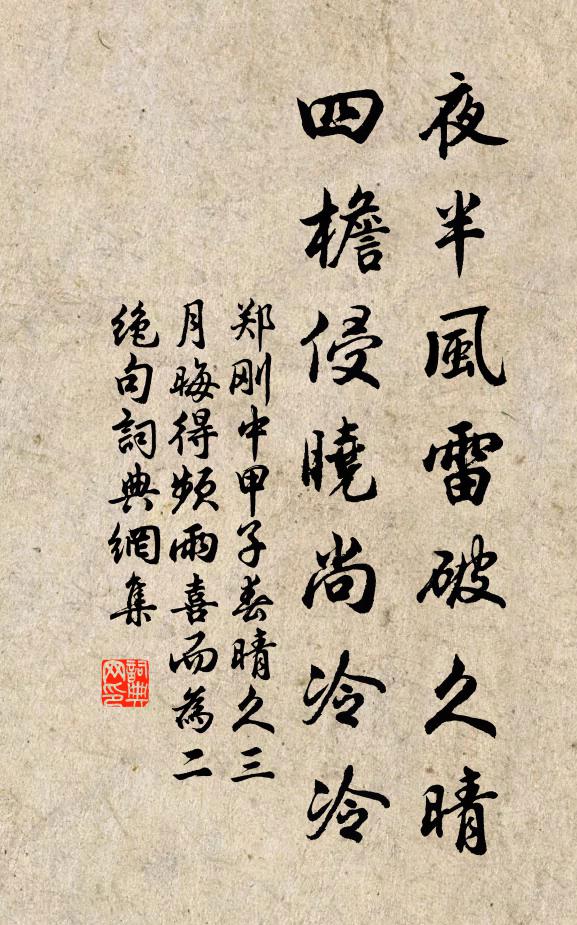 夜半風雷破久晴
四檐侵曉尚冷冷
郑刚中甲子春晴久三
月晦得頻雨喜而為二
絶句詞典網集
詞典网印